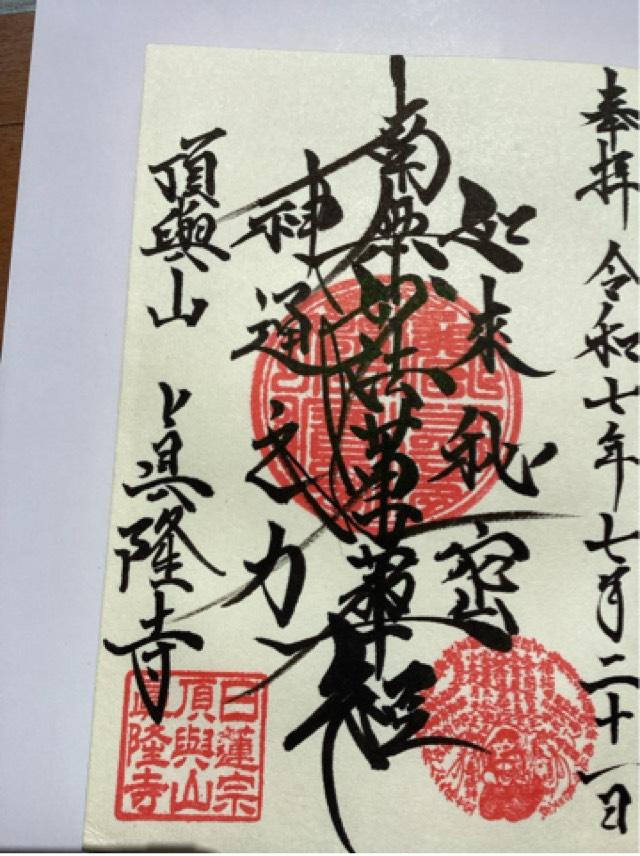 奉拝 令和七年七月二十一日
如来秘密
南無妙法蓮華経
神通之力
頂與山 眞隆寺
日蓮宗
頂與山
眞隆寺